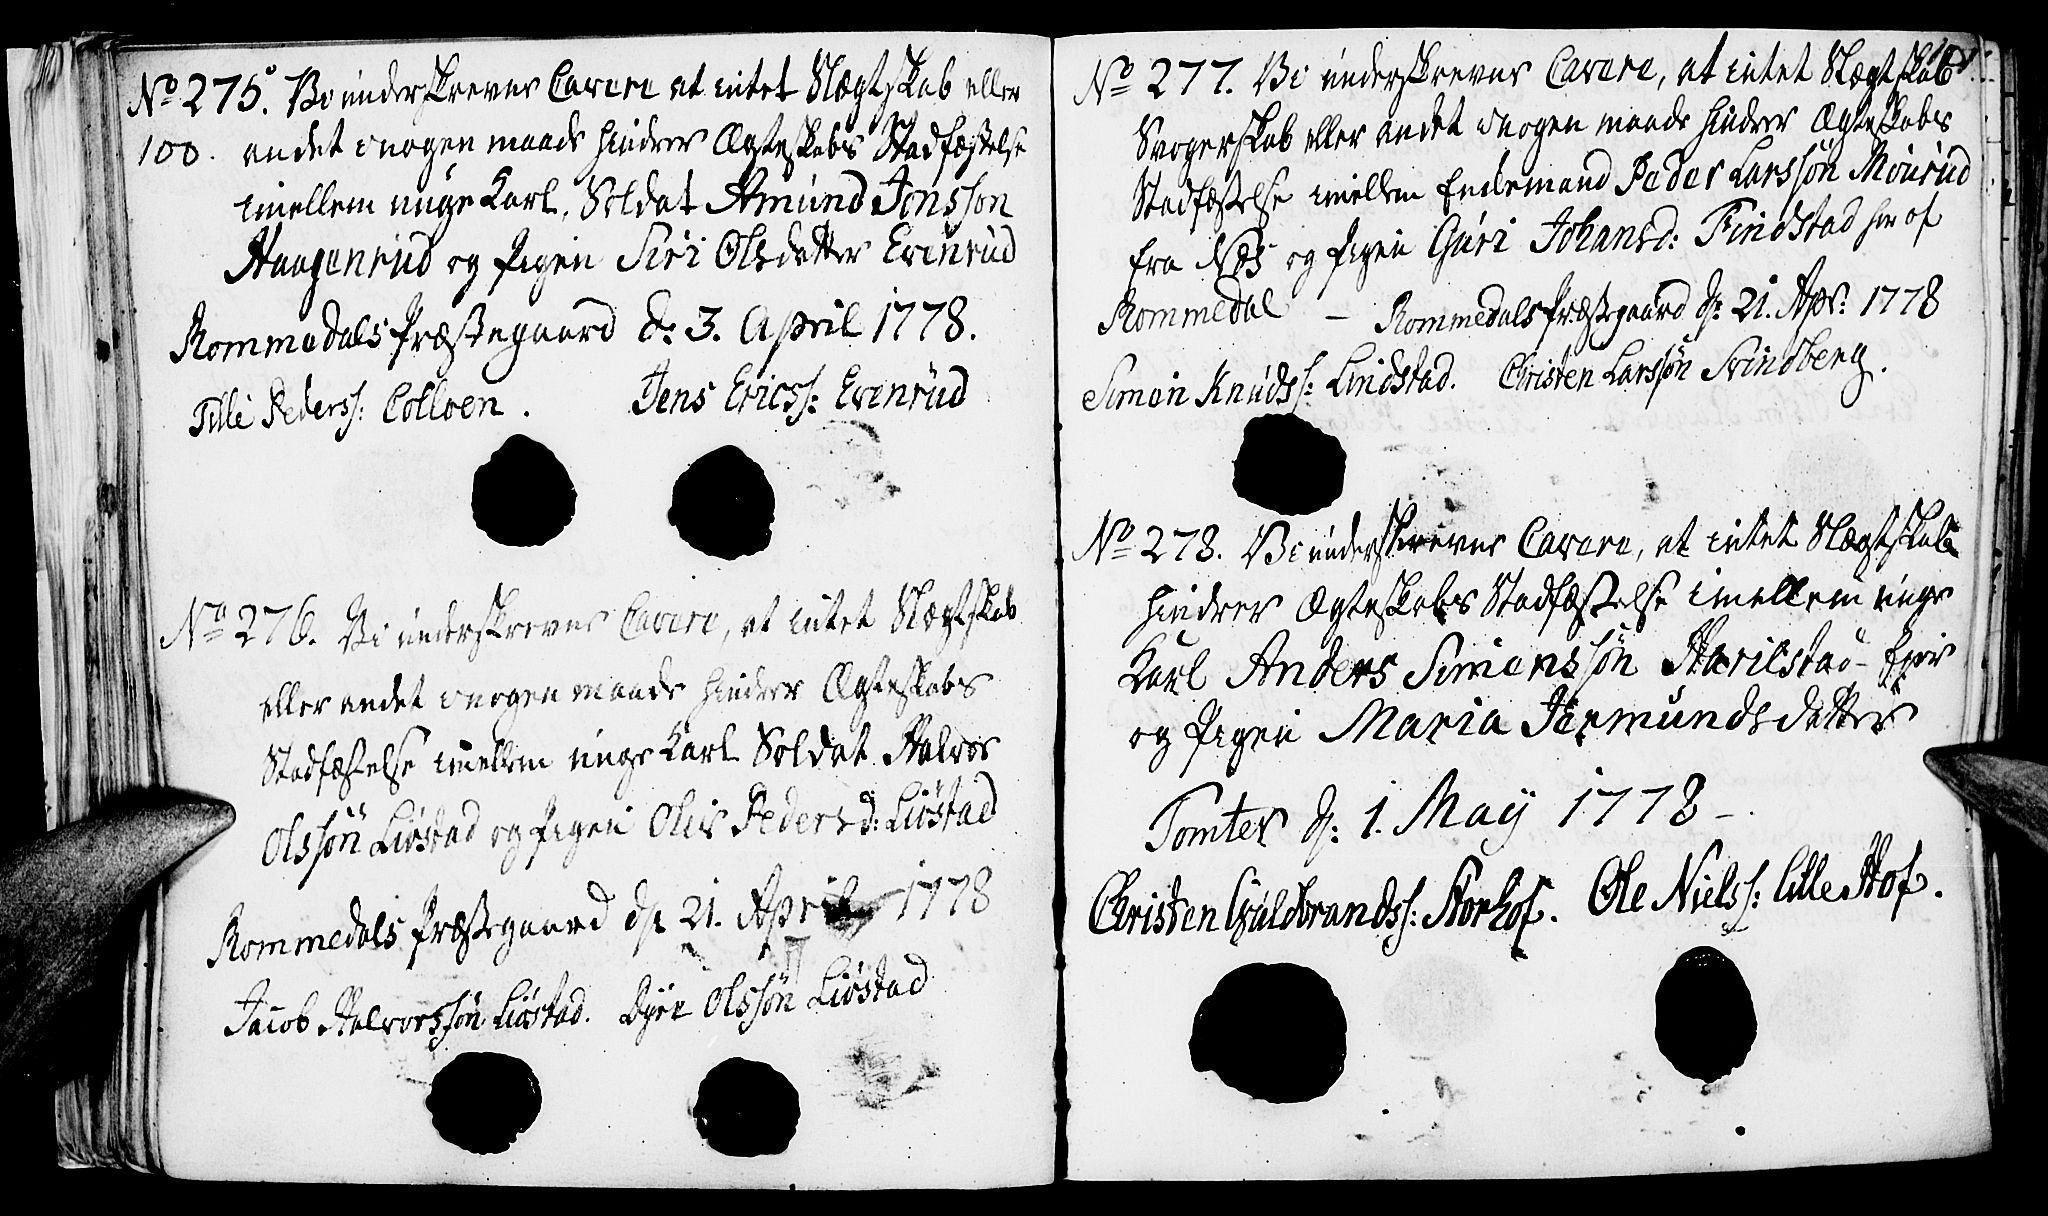 No 275. Vi underskrevne Cavere at intet Slægtskab eller
100. andet i nogen maade hindrer Ægteskabs Stadfæstelse
imellem unge Karl, Soldat Amund Jonsson
Haagenrud og Pigen Siri Olsdatter Evenrud
Rommedals Præstegaard d. 3. April 1778.
Tilli Peders: Colloen. Jens Erics: Evenrud
No 276. Vi underskrevne Cavere, at intet Slægtskab
eller andet i nogen maade hindrer Ægteskabs
Stadfæstelse imellem unge Karl Soldat Halvor
Olssøn Liøstad og Pigen Olia Pedersd: Liøstad
Rommedals Præstegaard d: 21. April 1778
Jacob Halvorssøn Liøstad. Dyre Olssøn Liøstad
No 277. Vi underskrevne Cavere, at intet Slægtskab
Svogerskab eller andet i nogen maade hindrer Ægteskabs
Stadfæstelse imellem Enkemand Peder Larssøn Mourud
fra Næs og Pigen Guri Johansd: Findstad her af
Rommedal – Rommedals Præstegaard d: 21. Apr: 1778
Simon Knudss: Lindstad. Christen Larssøn Svindberg.
No 278. Vi underskrevne Cavere, at intet Slægtskab
hindrer Ægteskabs Stadfæstelse imellem unge
Karl Anders Simenssøn Harilstad-Eyer
og Pigen Maria Jermundsdatter
Tomter d: 1. May 1778 –
Christen Guldbrandss: Storhof. Ole Nielss: Lille Hof.